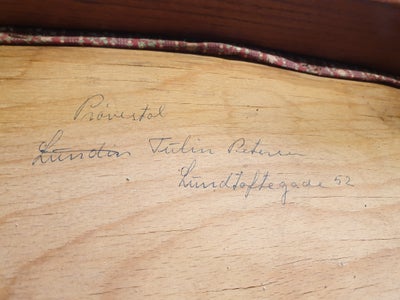 Prøvestol
Lundin Tulin Petersen
Lundtoftegade 52